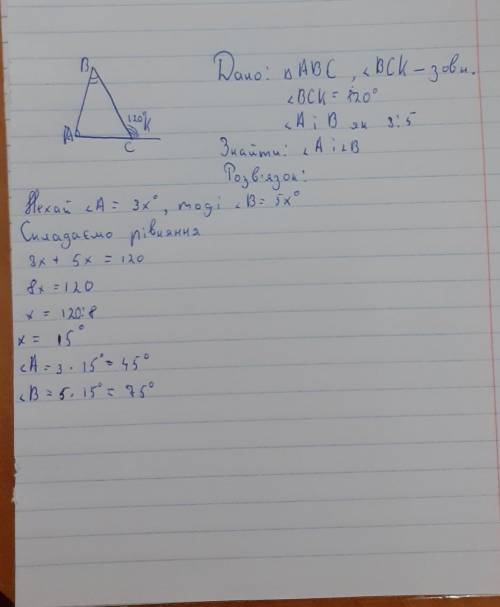 B
A
C
120°
K
Дано: △ABC, ∠BCK – зовн.
∠BCK = 120°
∠A і B як 3:5
Знайти: ∠A і ∠B
Розв'язок:
Нехай ∠A = 3x°, тоді ∠B = 5x°
Складаємо рівняння
3x + 5x = 120
8x = 120
x = 120:8
x = 15°
∠A = 3 · 15° = 45°
∠B = 5 · 15° = 75°